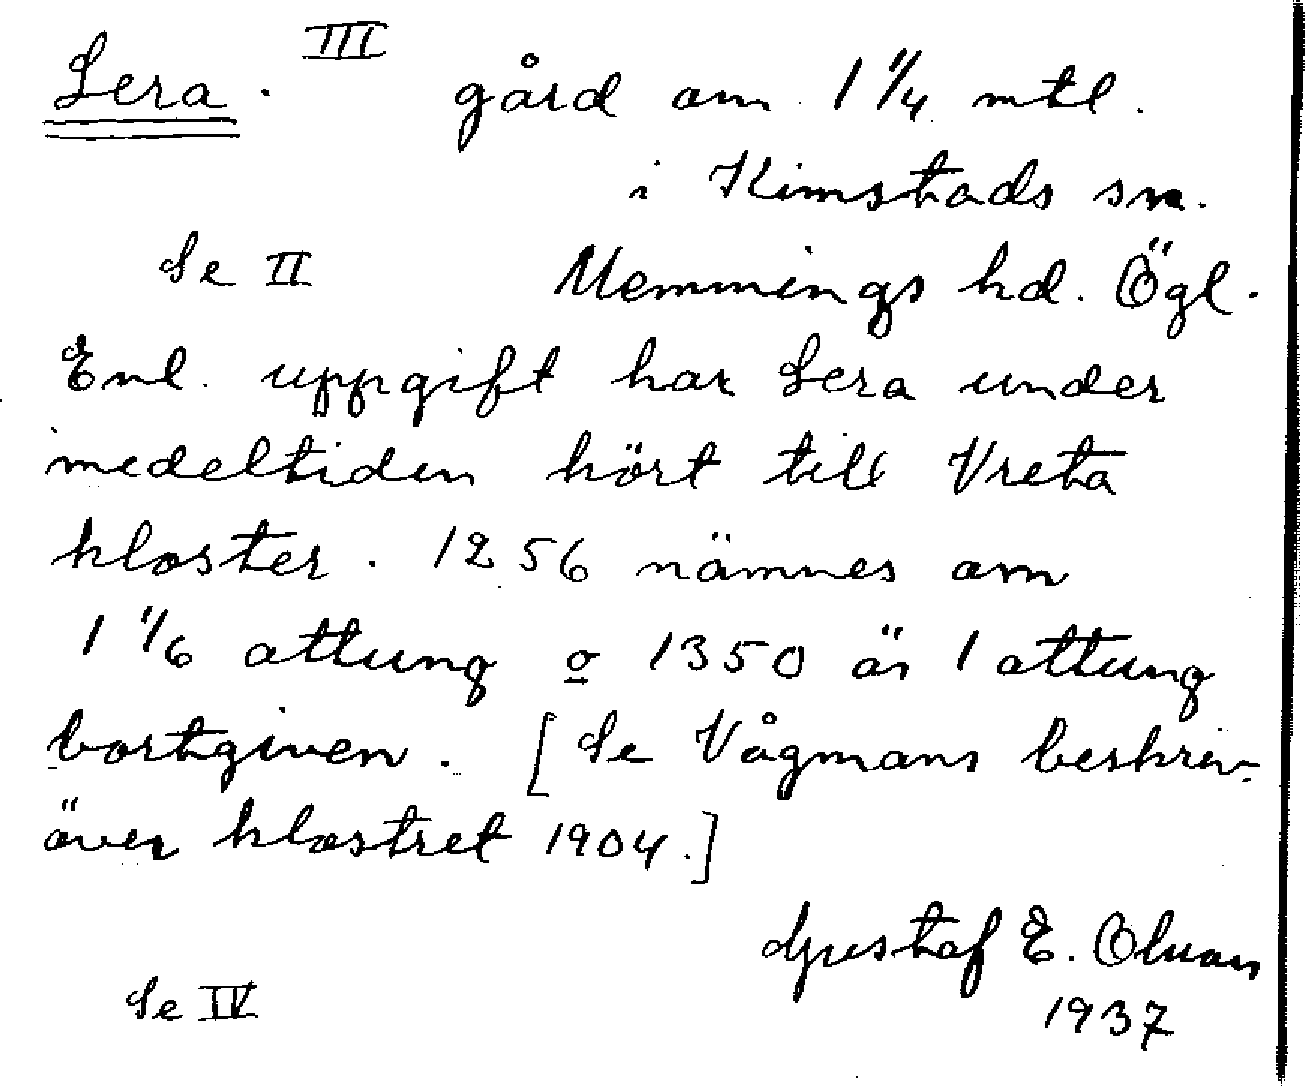 Lera. III gård om 1 1/4 mtl.
i Kimstads sn.
Se II Memmings hd. Ögl.
Enl. uppgift har Lera under
medeltiden hört till Vreta
kloster. 1256 nämnes om
1 1/6 attung o 1350 är 1 attung
bortgiven. [Se Vågmans beskriv-
över klostret 1904.]
Gustaf E. Olson
Se IV 1937